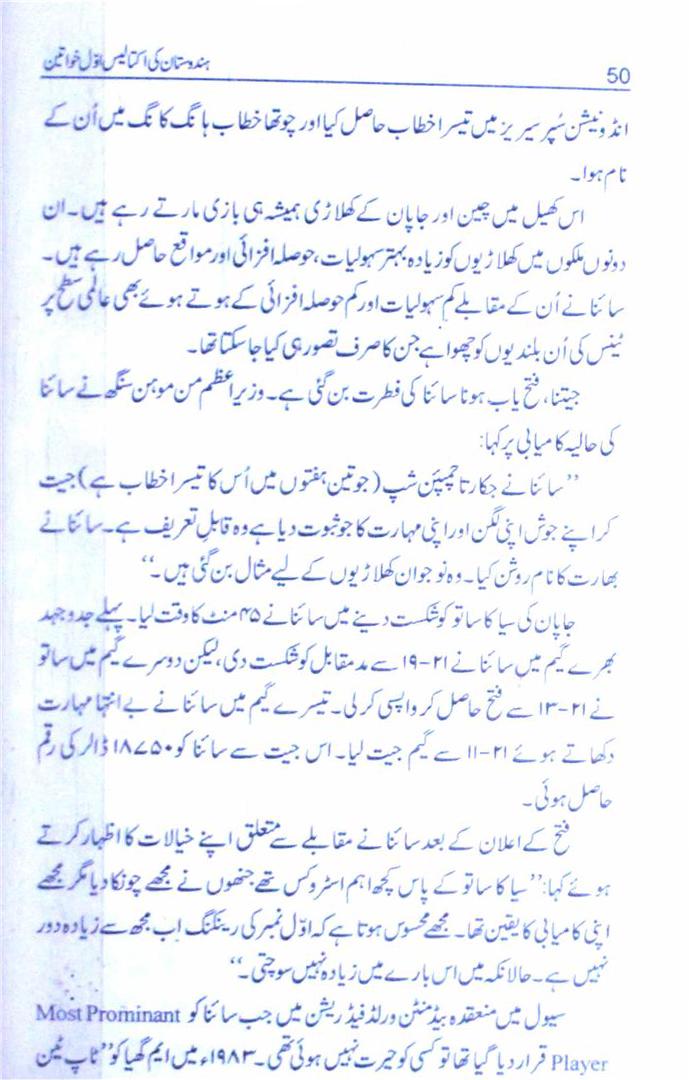 ہندوستان کی اکتالیس اوّل خواتین
50
انڈونیشن سُپر سیریز میں تیسرا خطاب حاصل کیا اور چوتھا خطاب ہانگ کانگ میں اُن کے
نام ہوا۔
اس کھیل میں چین اور جاپان کے کھلاڑی ہمیشہ ہی بازی مارتے رہے ہیں۔ ان
دونوں ملکوں میں کھلاڑیوں کو زیادہ بہتر سہولیات، حوصلہ افزائی اور مواقع حاصل رہے ہیں۔
سائنا نے اُن کے مقابلے کم سہولیات اور کم حوصلہ افزائی کے ہوتے ہوئے بھی عالمی سطح پر
ٹینس کی اُن بلندیوں کو چھوا ہے جن کا صرف تصور ہی کیا جا سکتا تھا۔
جیتنا، فتح یاب ہونا سائنا کی فطرت بن گئی ہے۔ وزیر اعظم من موہن سنگھ نے سائنا
کی حالیہ کامیابی پر کہا:
”سائنا نے جکارتا چمپئن شپ (جو تین ہفتوں میں اُس کا تیسرا خطاب ہے) جیت
کر اپنے جوش اپنی لگن اور اپنی مہارت کا جو ثبوت دیا ہے وہ قابلِ تعریف ہے۔ سائنا نے
بھارت کا نام روشن کیا۔ وہ نوجوان کھلاڑیوں کے لیے مثال بن گئی ہیں۔“
جاپان کی سیا کا ساتو کو شکست دینے میں سائنا نے ۴۵ منٹ کا وقت لیا۔ پہلے جدوجہد
بھرے گیم میں سائنا نے ۲۱-۱۹ سے مد مقابل کو شکست دی، لیکن دوسرے گیم میں ساتو
نے ۲۱-۱۳ سے فتح حاصل کر واپسی کر لی۔ تیسرے گیم میں سائنا نے بے انتہا مہارت
دکھاتے ہوئے ۲۱-۱۱ سے گیم جیت لیا۔ اس جیت سے سائنا کو ۱۸۷۵۰ ڈالر کی رقم
حاصل ہوئی۔
فتح کے اعلان کے بعد سائنا نے مقابلے سے متعلق اپنے خیالات کا اظہار کرتے
ہوئے کہا: ”سیا کا ساتو کے پاس کچھ اہم اسٹروکس تھے جنھوں نے مجھے چونکا دیا مگر مجھے
اپنی کامیابی کا یقین تھا۔ مجھے محسوس ہوتا ہے کہ اوّل نمبر کی رینکنگ اب مجھ سے زیادہ دور
نہیں ہے۔ حالانکہ میں اس بارے میں زیادہ نہیں سوچتی۔“
سیول میں منعقدہ بیڈمنٹن ورلڈ فیڈریشن میں جب سائنا کو Most Prominant
Player قرار دیا گیا تھا تو کسی کو حیرت نہیں ہوئی تھی۔ ۱۹۸۳ء میں ایم گھیا کو ”ٹاپ ٹین